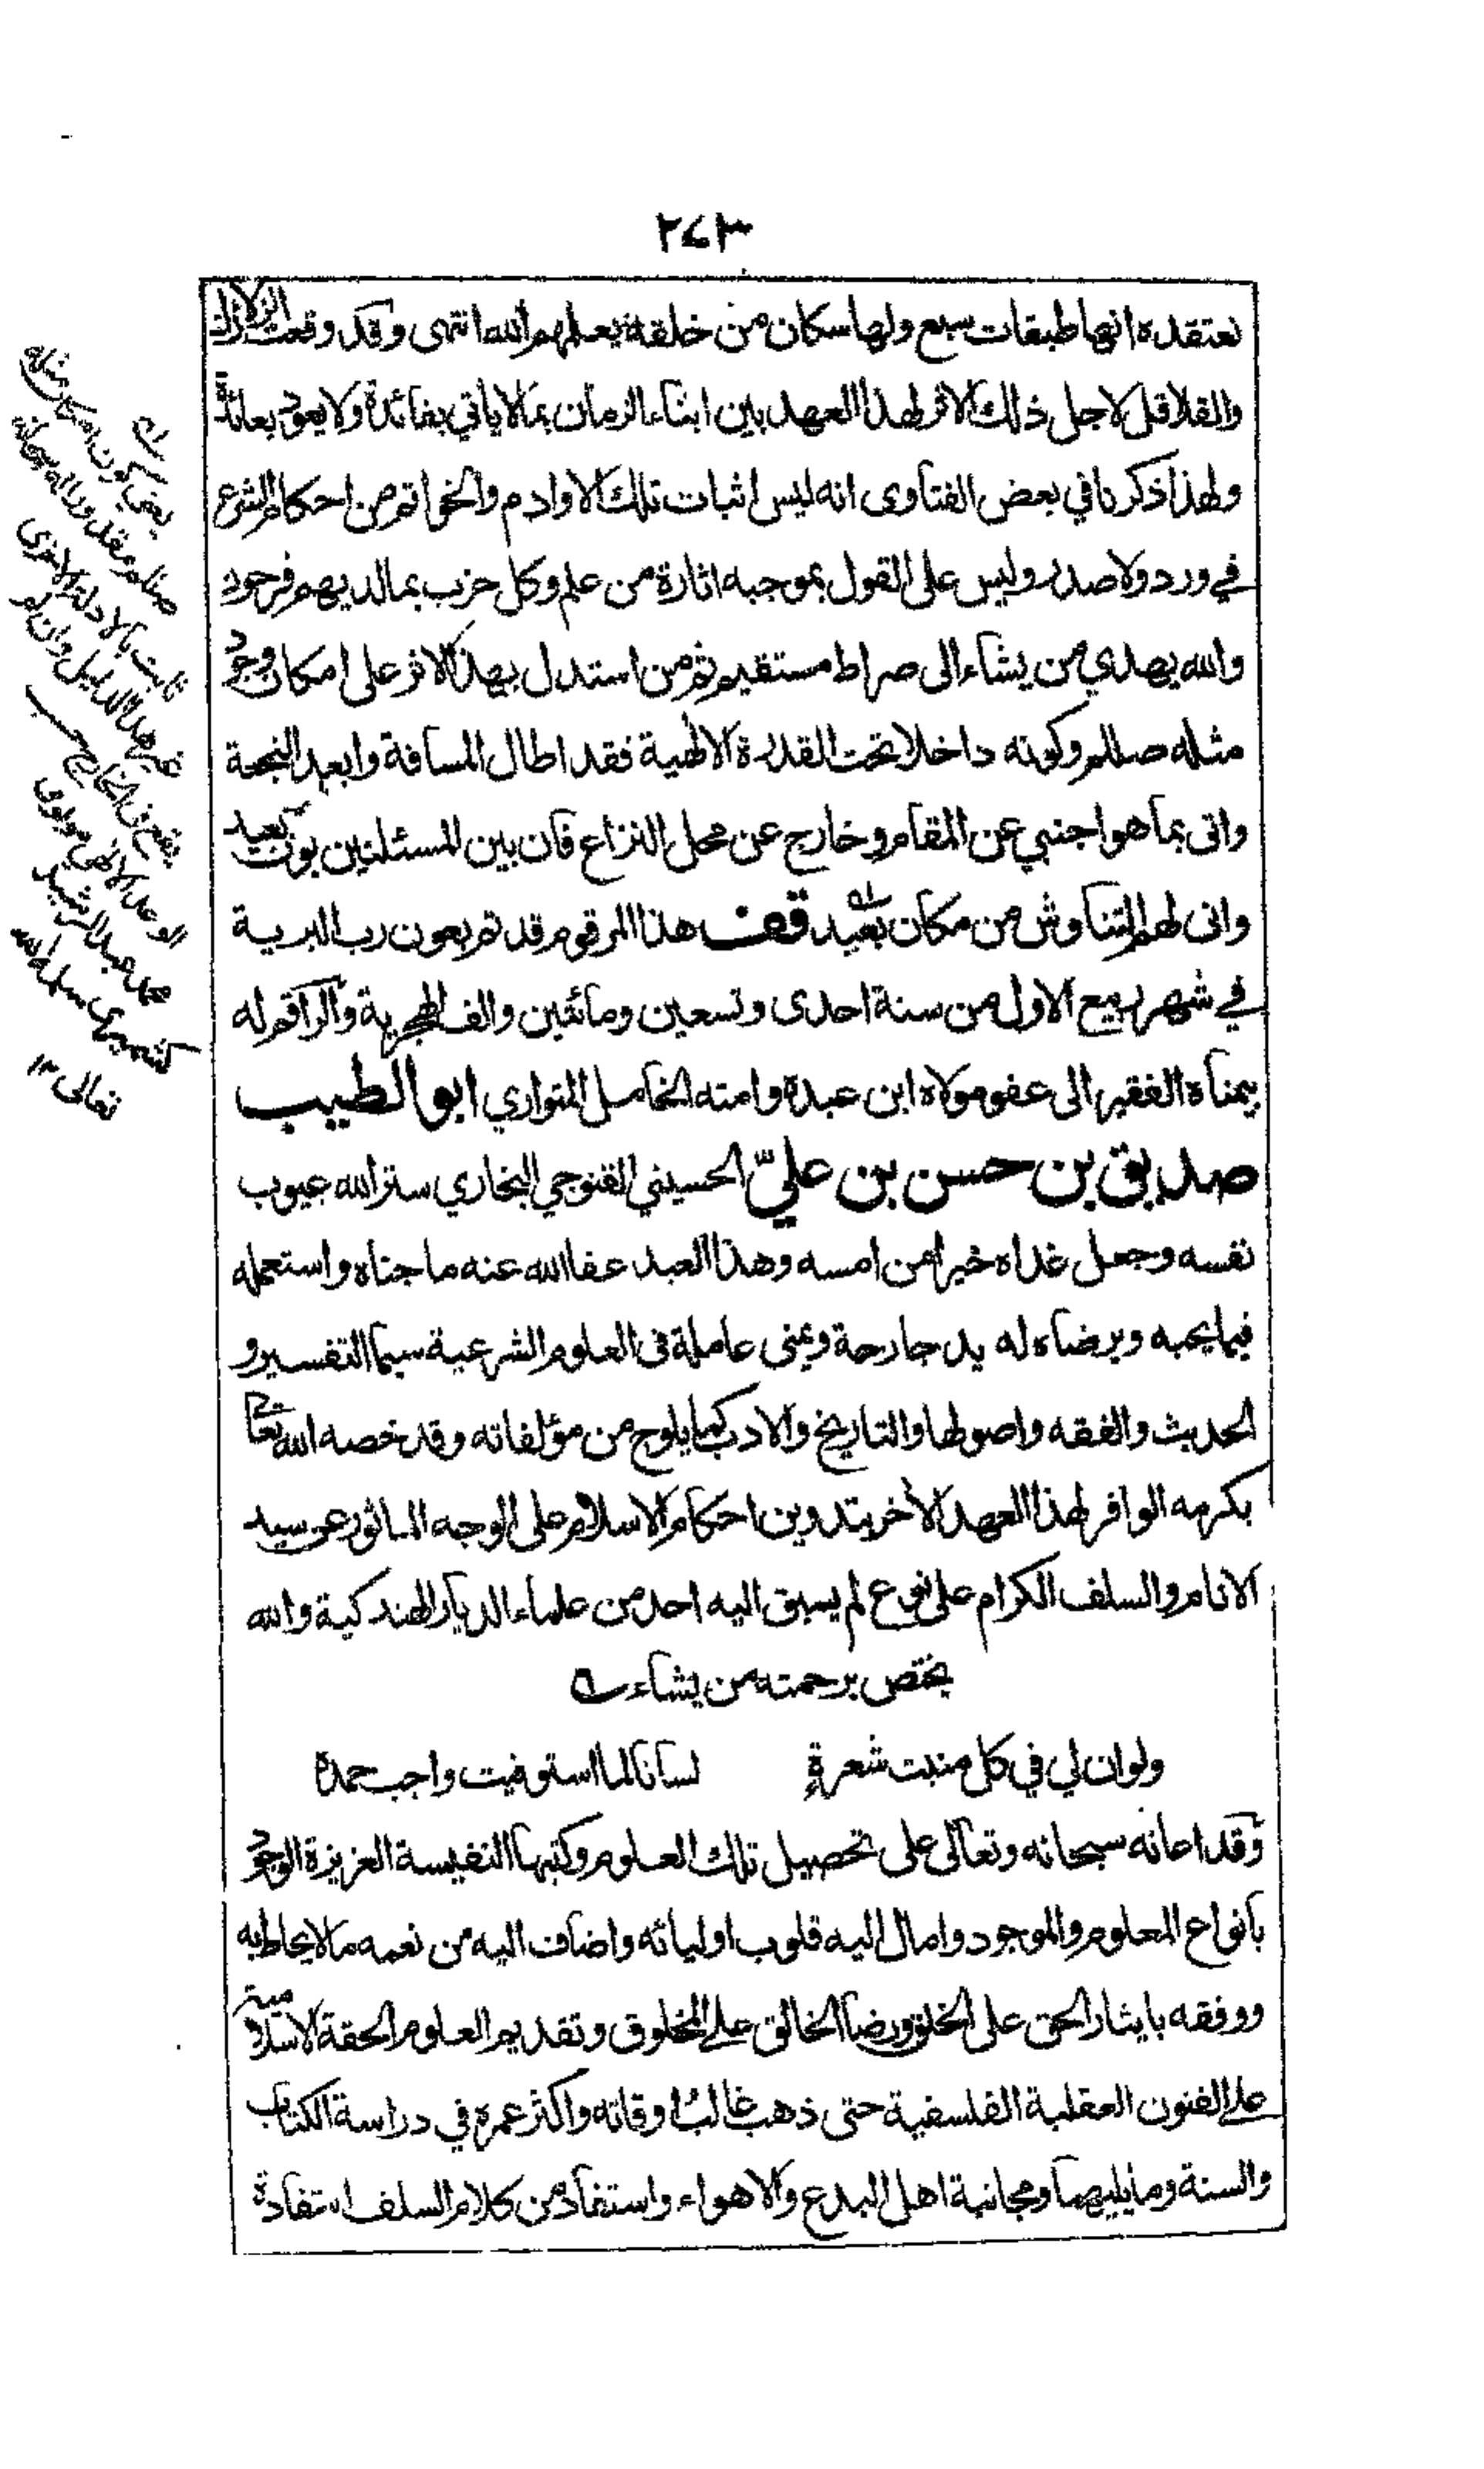 ٢٤٣
نعتقده انها طبقات سبع ولها سكان من خلقه يعلمهم الله انتهى وقد وقعت الزلازل
والقلاقل لاجل ذلك الاثر لهذا العهد بين ابناء الزمان بمالا ياتي بفائدة ولا يعود بعائدة
ولهذا ذكرنا في بعض الفتاوى انه ليس اثبات تلك الاوادم والخواتم من احكام الشرع
في ورد ولا صدر وليس على القول بموجبه اثارة من علم وكل حزب بما لديهم فرحون
والله يهدي من يشاء الى صراط مستقيم ثم من استدل بهذا الاثر على امكان وجود
مثله صللم وكونه داخلا تحت القدرة الالهية فقد اطال المسافة وابعد النجعة
واتى بما هو اجنبي عن المقام وخارج عن محل النزاع فان بين المسئلتين بون بعيد
وانى لهم التناوش من مكان بعيد قف هذا المرقوم قد تم بعون رب البرية
في شهر ربيع الاول من سنة احدى وتسعين ومائتين والف الهجرية والراقم له
بيمناه الفقير الى عفو مولاه ابن عبده وامته الخامل المتواري ابو الطيب
صديق بن حسن بن عليّ الحسيني القنوجي البخاري ستر الله عيوب
نفسه وجعل غداه خيرا من امسه وهذا العبد عفا الله عنه ما جناه واستعمله
فيما يحبه ويرضاه له يد جارحة ويمنى عاملة فى العلوم الشرعية سيما التفسير و
الحديث والفقه واصولها والتاريخ والادب كما يلوح من مؤلفاته وقد خصه الله تعا
بكرمه الوافر لهذا العهد الأخر بتدوين احكام الاسلام على الوجه الماثور عن سيد
الانام والسلف الكرام على نوع لم يسبق اليه احد من علماء الديار الهندكية والله
يختص برحمته من يشاء
ولوان لي في كل منبت شعرةٍ لسانا لما استوفيت واجب حمده
وقد اعانه سبحانه وتعالى على تحصيل تلك العلوم وكتبها النفيسة العزيزة الوجود
بانواع المعلوم والموجود وامال اليه قلوب اوليائه واضاف اليه من نعمه مالا يحاط به
ووفقه بايثار الحق على الخلق ورضا الخالق على المخلوق وتقديم العلوم الحقة الاسلامية
على الفنون العقلية الفلسفية حتى ذهب غالب اوقاته واكثر عمره في دراسة الكتاب
والسنة وما يليهما ومجانبة اهل البدع والاهواء واستفاد من كلام السلف استفادة
يعني كون امكان مثله
صللم مقدورا له سبحانه
ثابت بالادلة الاخرى
غير هذا الدليل وان لم
يقع في الخارج حسب
الوعد الالهي مولوي
محمد عبد الرشيد
كشميري سلمه الله
تعالى ١٢